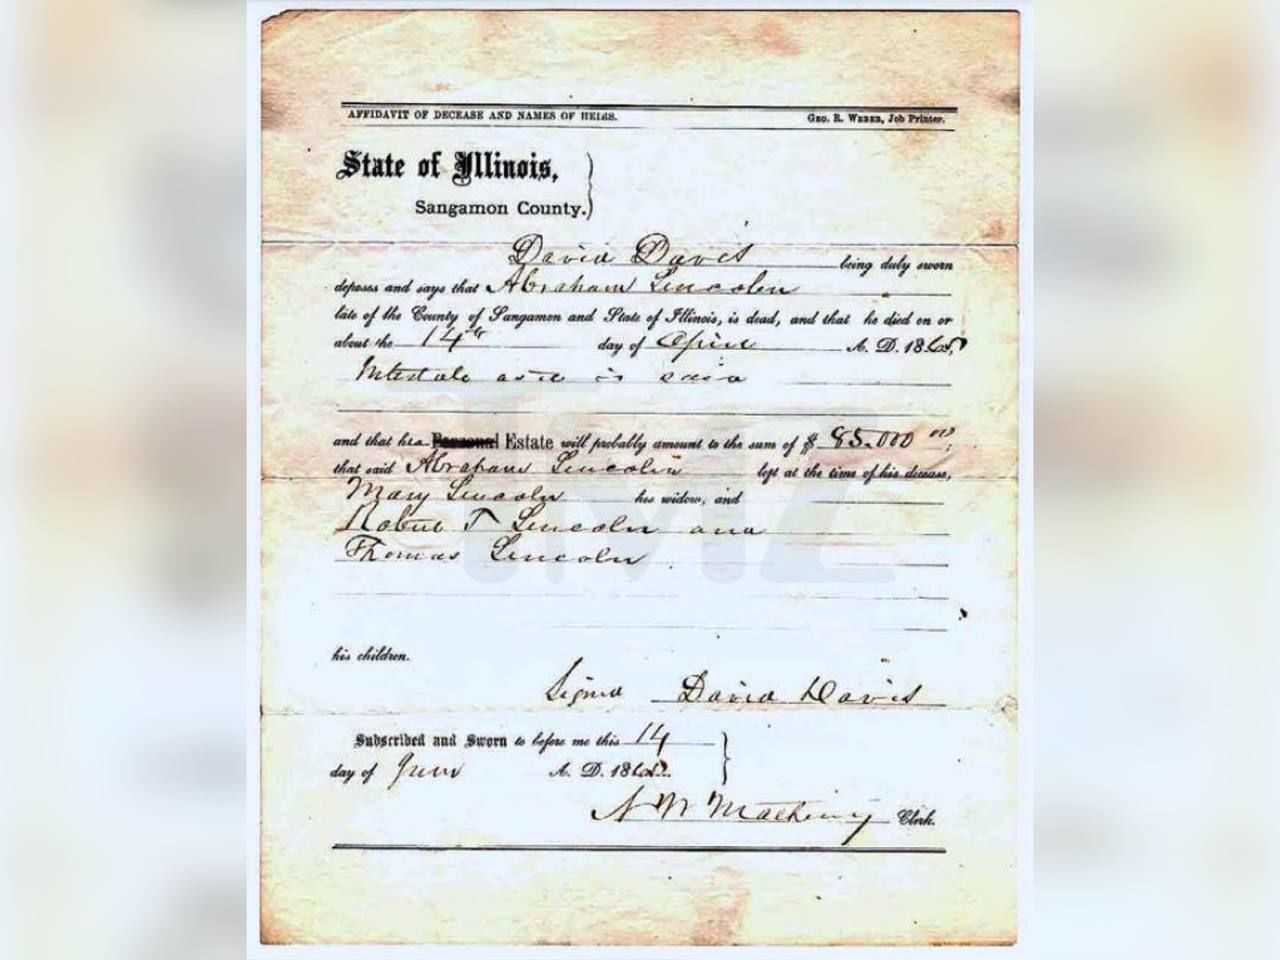 AFFIDAVIT OF DECEASE AND NAMES OF HEIRS. GEO. R. WEBER, Job Printer.
State of Illinois,
Sangamon County.
David Davis being duly sworn
deposes and says that Abraham Lincoln
late of the County of Sangamon and State of Illinois, is dead, and that he died on or
about the 14th day of April A. D. 1865,
Intestate as it is said
and that his Personal Estate will probably amount to the sum of $ 85.000 00;
that said Abraham Lincoln left at the time of his decease,
Mary Lincoln his widow, and
Robert T Lincoln and
Thomas Lincoln
his children.
Signed David Davis
Subscribed and Sworn to before me this 14
day of June A. D. 1865.
N W Matheny Clerk.
TMZ